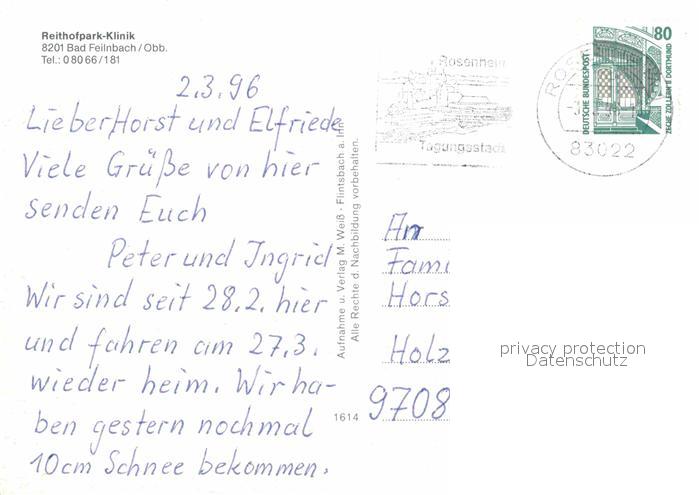 Reithofpark-Klinik
8201 Bad Feilnbach/Obb.
Tel.: 0 80 66/181
2.3.96
Lieber Horst und Elfriede
Viele Grüße von hier
senden Euch
Peter und Ingrid
Wir sind seit 28.2. hier
und fahren am 27.3.
wieder heim. Wir ha-
ben gestern nochmal
10cm Schnee bekommen.
Aufnahme u. Verlag M. Weiß · Flintsbach a. Inn
Alle Rechte d. Nachbildung vorbehalten.
1614
Rosenheim
Tagungsstadt
83022
80
DEUTSCHE BUNDESPOST
ZECHE ZOLLERN II DORTMUND
An
Fami
Hors
Holz
9708
privacy protection
Datenschutz